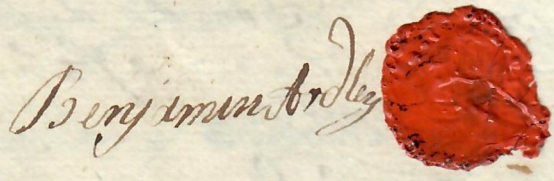 Benjamin Ardley